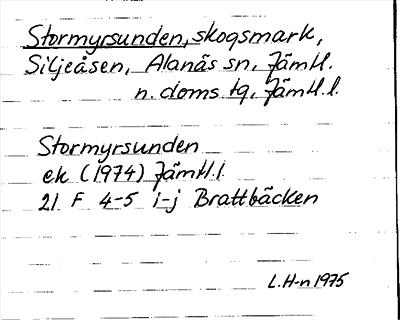 Stormyrsunden, skogsmark,
Siljeåsen, Alanäs sn, Jämtl.
n. doms tg, Jämtl. l.
Stormyrsunden
ek (1974) Jämtl. l
21 F 4-5 i-j Brattbäcken
L.H-n 1975